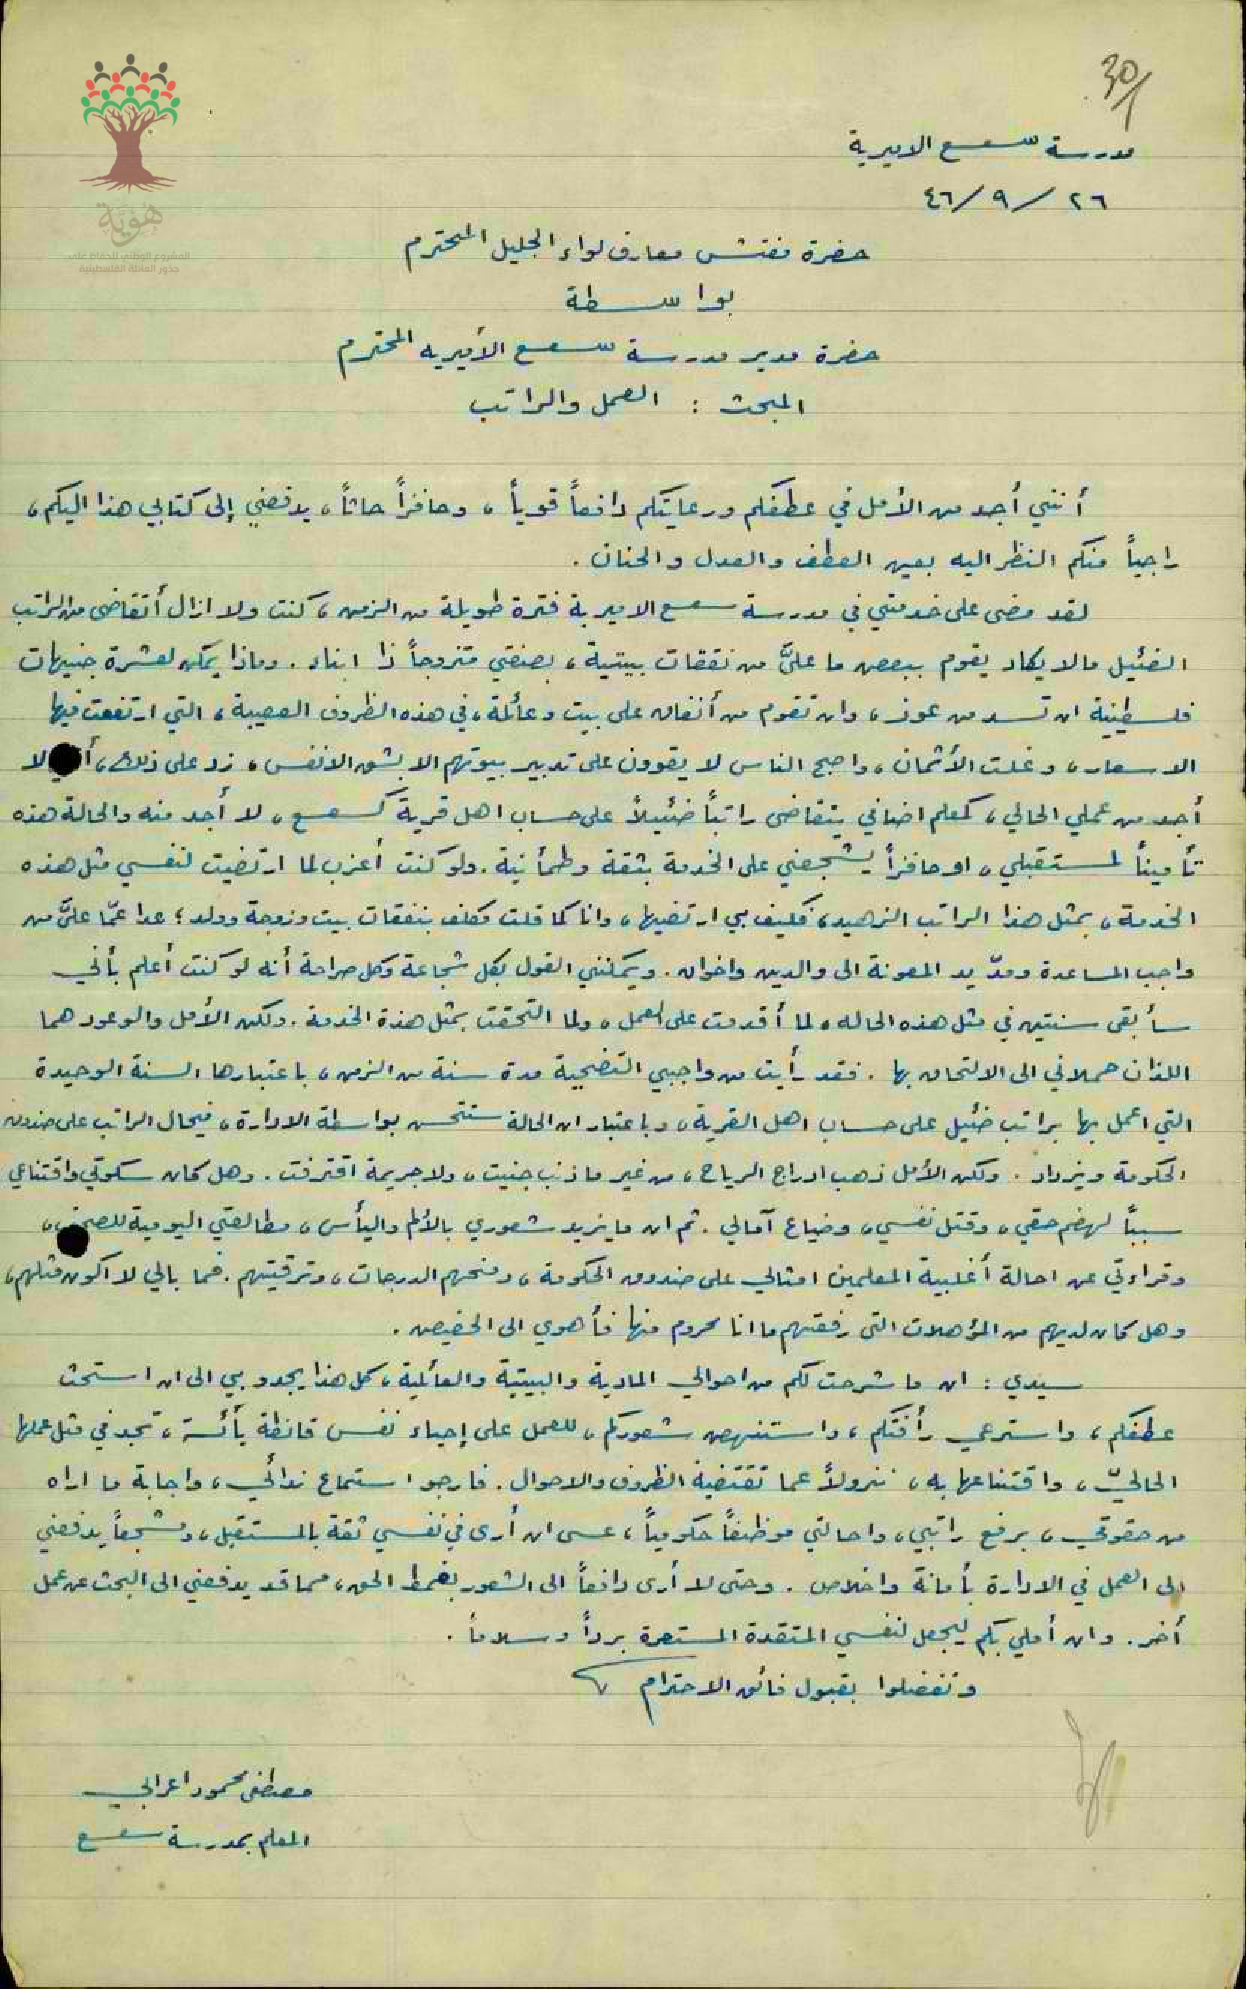 30/1
مدرسة سعسع الاميرية
٢٦ / ٩ / ٤٦
هوية
المشروع الوطني للحفاظ على
جذور العائلة الفلسطينية
حضرة مفتش معارف لواء الجليل المحترم
بواسطة
حضرة مدير مدرسة سعسع الأميريه المحترم
المبحث : العمل والراتب
أنني أجد من الأمل في عطفكم ورعايتكم دافعاً قوياً ، وحافزاً حاثاً ، يدفعني إلى كتابي هذا اليكم ،
راجياً منكم النظر اليه بعين العطف والعدل والحنان .
لقد مضى على خدمتي في مدرسة سعسع الاميرية فترة طويلة من الزمن ، كنت ولا ازال أتقاضى من الراتب
الضئيل مالا يكاد يقوم ببعض ما عليَّ من نفقات بيتية ، بصفتي متزوجاً ذا ابناء . وماذا يمكن لعشرة جنيهات
فلسطينية ان تسد من عوز ، وان تقوم من أنفاق على بيت وعائلة ، في هذه الظروف العصيبة ، التي ارتفعت فيها
الاسعار ، وغلت الأثمان ، واصبح الناس لا يقوون على تدبير بيوتهم الا بشق الانفس ، زد على ذلك ، لا
أجد من عملي الحالي ، كمعلم اضافي يتقاضى راتباً ضئيلاً على حساب اهل قرية كسعسع ، لا أجد منه والحالة هذه
تأميناً لمستقبلي ، او حافزاً يشجعني على الخدمة بثقة وطمأنية . ولو كنت أعزب لما ارتضيت لنفسي مثل هذه
الخدمة ، بمثل هذا الراتب الزهيد ، فكيف بي ارتضيها ، وانا كما قلت مكلف بنفقات بيت وزوجة وولد ؛ عدا عمّا عليَّ من
واجب المساعدة ومدّ يد المعونة الى والدين واخوان . ويمكنني القول بكل شجاعة وكل صراحة أنه لو كنت أعلم بأني
سأبقى سنتين في مثل هذه الحاله ، لما أقدمت على العمل ، ولما التحقت بمثل هذة الخدمة . ولكن الأمل والوعود هما
اللذان حملاني الى الالتحاق بها . فقد رأيت من واجبي التضحية مدة سنة من الزمن ، باعتبارها السنة الوحيدة
التي اعمل بها براتب ضئيل على حساب اهل القرية ، وباعتبار ان الحالة ستتحسن بواسطة الادارة ، فيحال الراتب على صندوق
الحكومة ويزداد . ولكن الأمل ذهب ادراج الرياح ، من غير ما ذنب جنيت ، ولا جريمة اقترفت . وهل كان سكوتي واقتناعي
سبباً لهضم حقي ، وقتل نفسي ، وضياع آمالي . ثم ان ما يزيد شعوري بالألم واليأس ، مطالعتي اليومية للصحف ،
وقراءتي عن احالة أغلبية المعلمين امثالي على صندوق الحكومة ، ومنحهم الدرجات ، وترقيتهم . فما بالي لا اكون مثلهم ،
وهل كان لديهم من المؤهلات التى رفعتهم ما انا محروم منها فأهوي الى الحضيض .
سيدي : ان ما شرحت لكم من احوالي المادية والبيتية والعائلية ، كل هذا يحدو بي الى ان استحث
عطفكم ، واسترعي رأفتكم ، واستنهض شعوركم ، للعمل على إحياء نفس قانطة يأئسة ، تجد في مثل عملها
الحاليّ ، واقتناعها به ، نزولاً عما تقتضية الظروف والاحوال . فارجو استماع ندائي ، واجابة ما اراه
من حقوقي ، برفع راتبي ، واحالتي موظفاً حكومياً ، عسى ان أرى في نفسي ثقة بالمستقبل ، ومشجعاً يدفعني
الى العمل في الادارة بأمانة واخلاص . وحتى لا أرى دافعاً الى الشعور بغمط الحق ، مما قد يدفعني الى البحث عن عمل
أخر . وان أملي بكم ليجعل لنفسي المتقدة المستعرة برداً وسلاماً .
وتفضلوا بقبول فائق الاحترام
مصطفى محمود اعرابي
المعلم بمدرسة سعسع